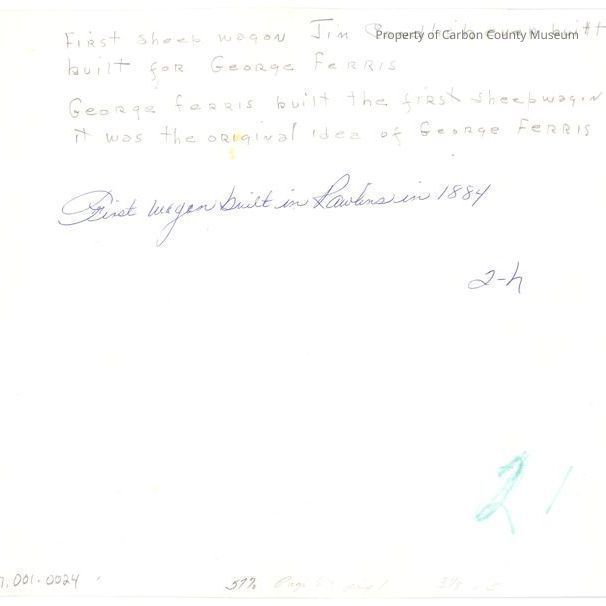 First sheep wagon Jim built
Property of Carbon County Museum
built for George Ferris
George Ferris built the first sheepwagin
it was the original idea of George Ferris
First wagon built in Rawlins in 1884
2-h
21
7.001.0024
57%